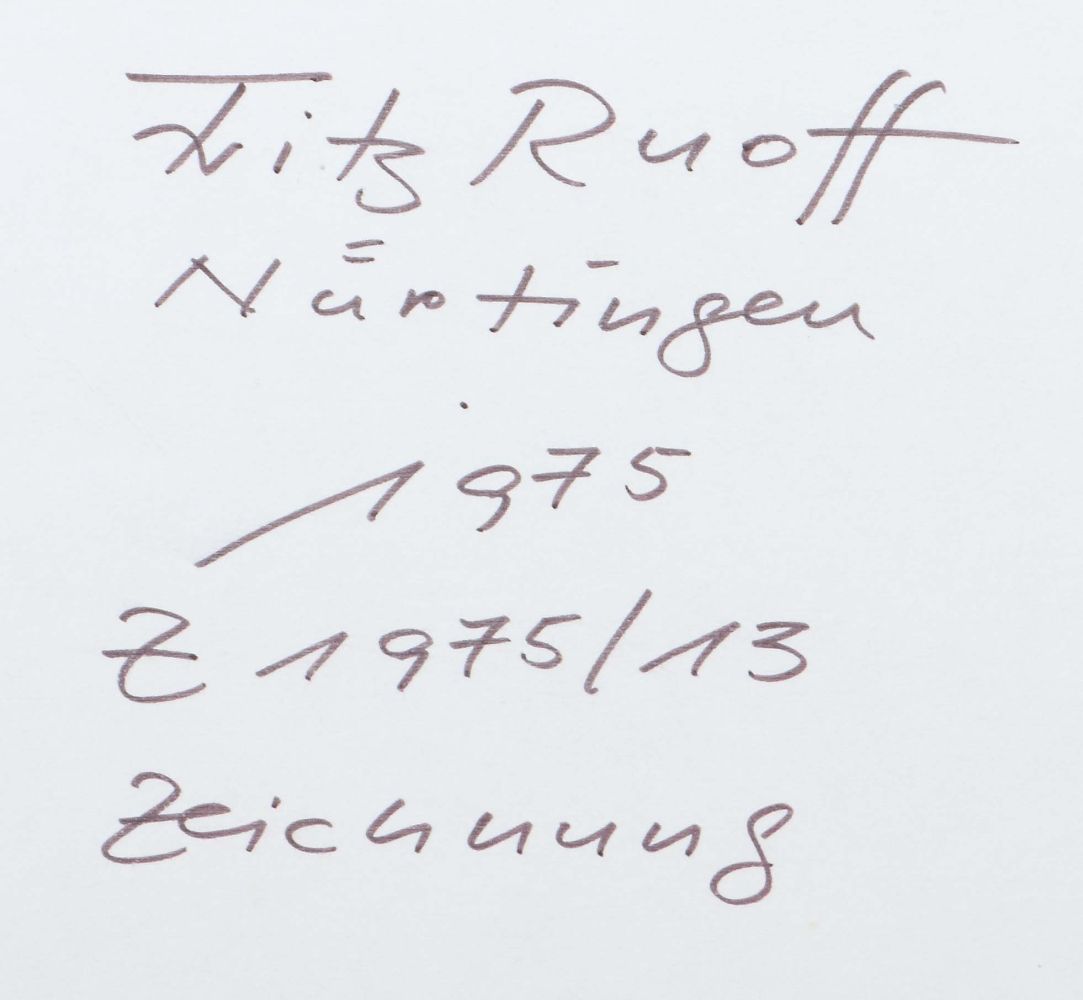 Fritz Ruoff
Nürtingen
1975
Z 1975/13
Zeichnung